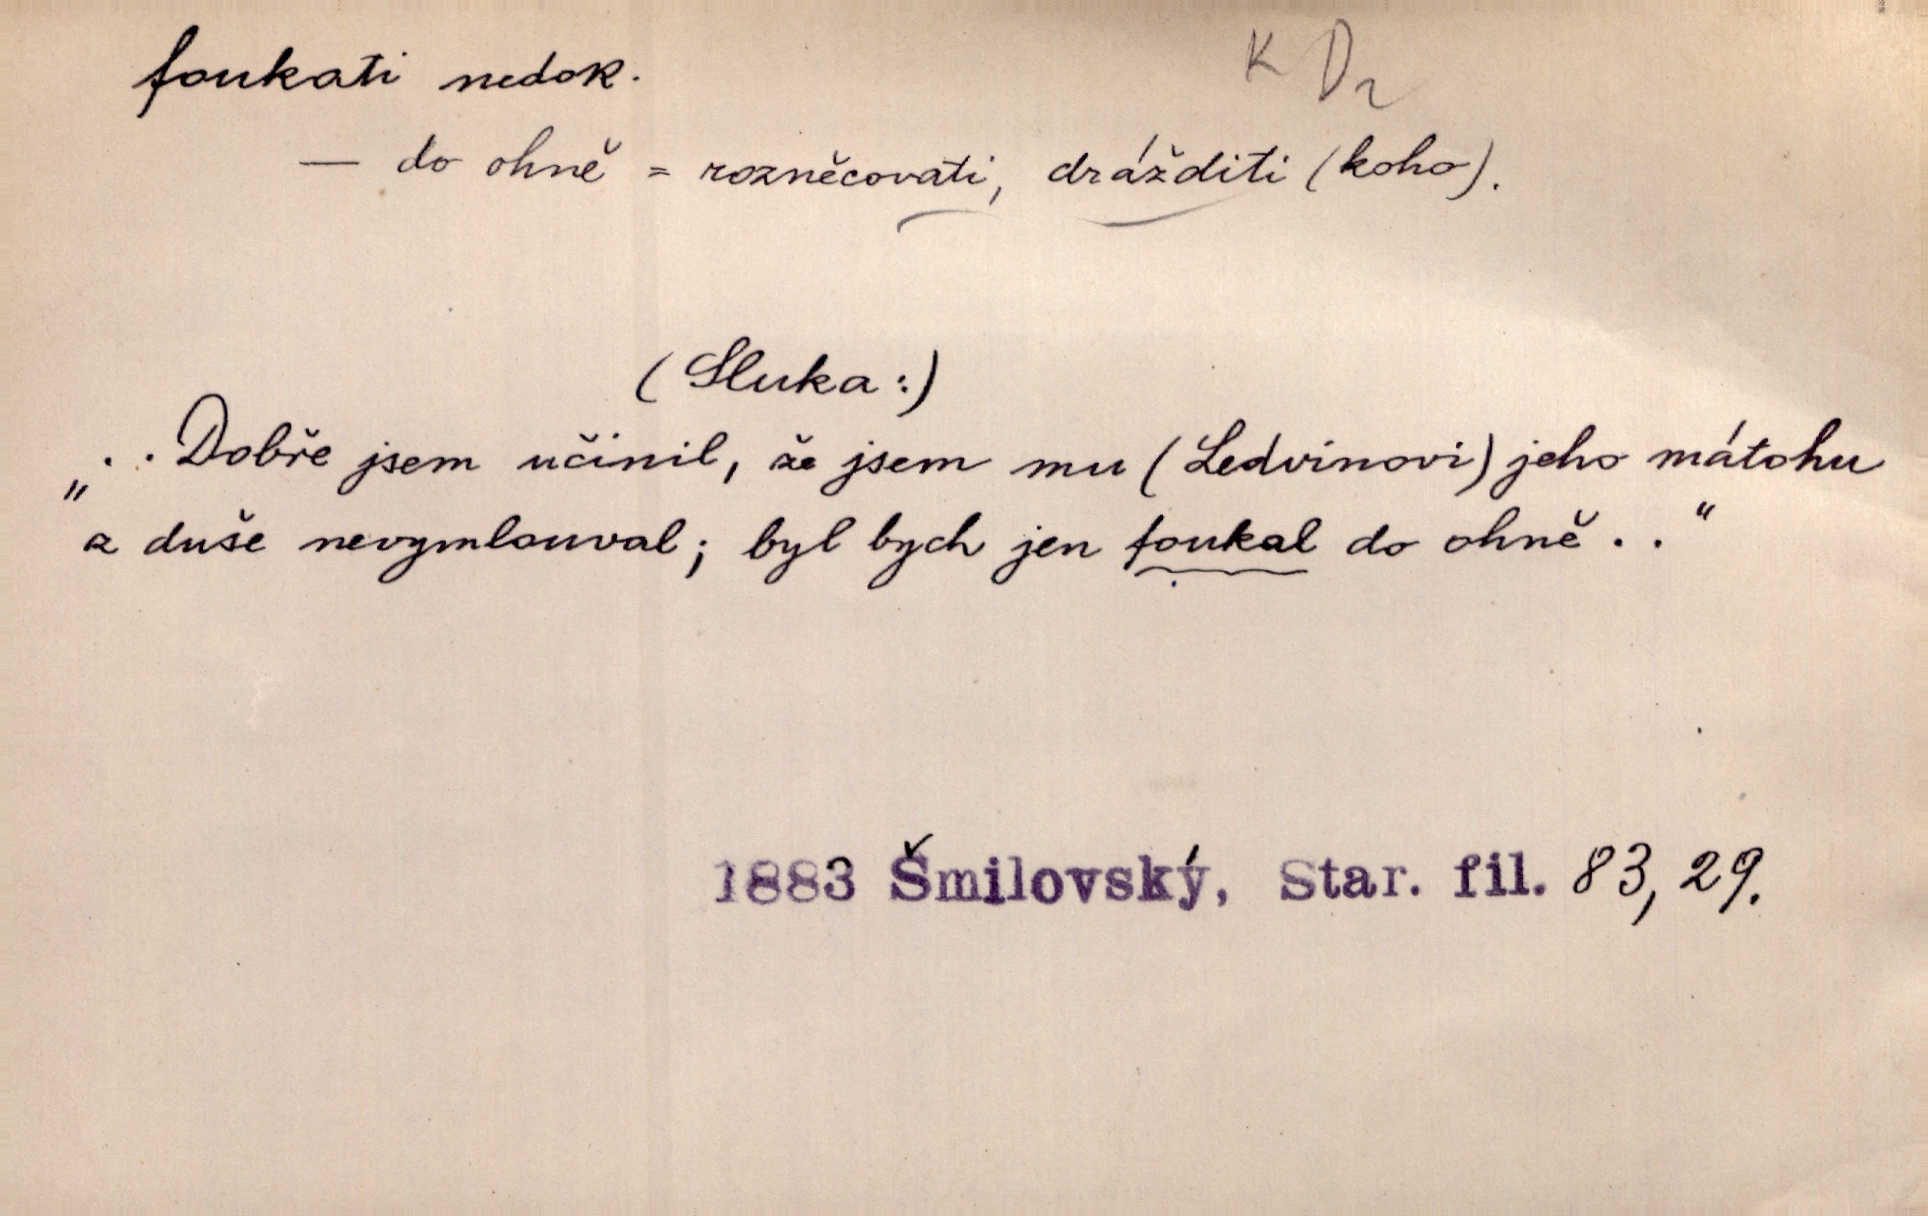 foukati nedok.
K Dr
— do ohně = rozněcovati, drážditi (koho).
(Sluka:)
„ . . Dobře jsem učinil, že jsem mu (Ledvinovi) jeho mátohu
z duše nevymlouval; byl bych jen foukal do ohně . . “
1883 Šmilovský, Star. fil. 83, 29.